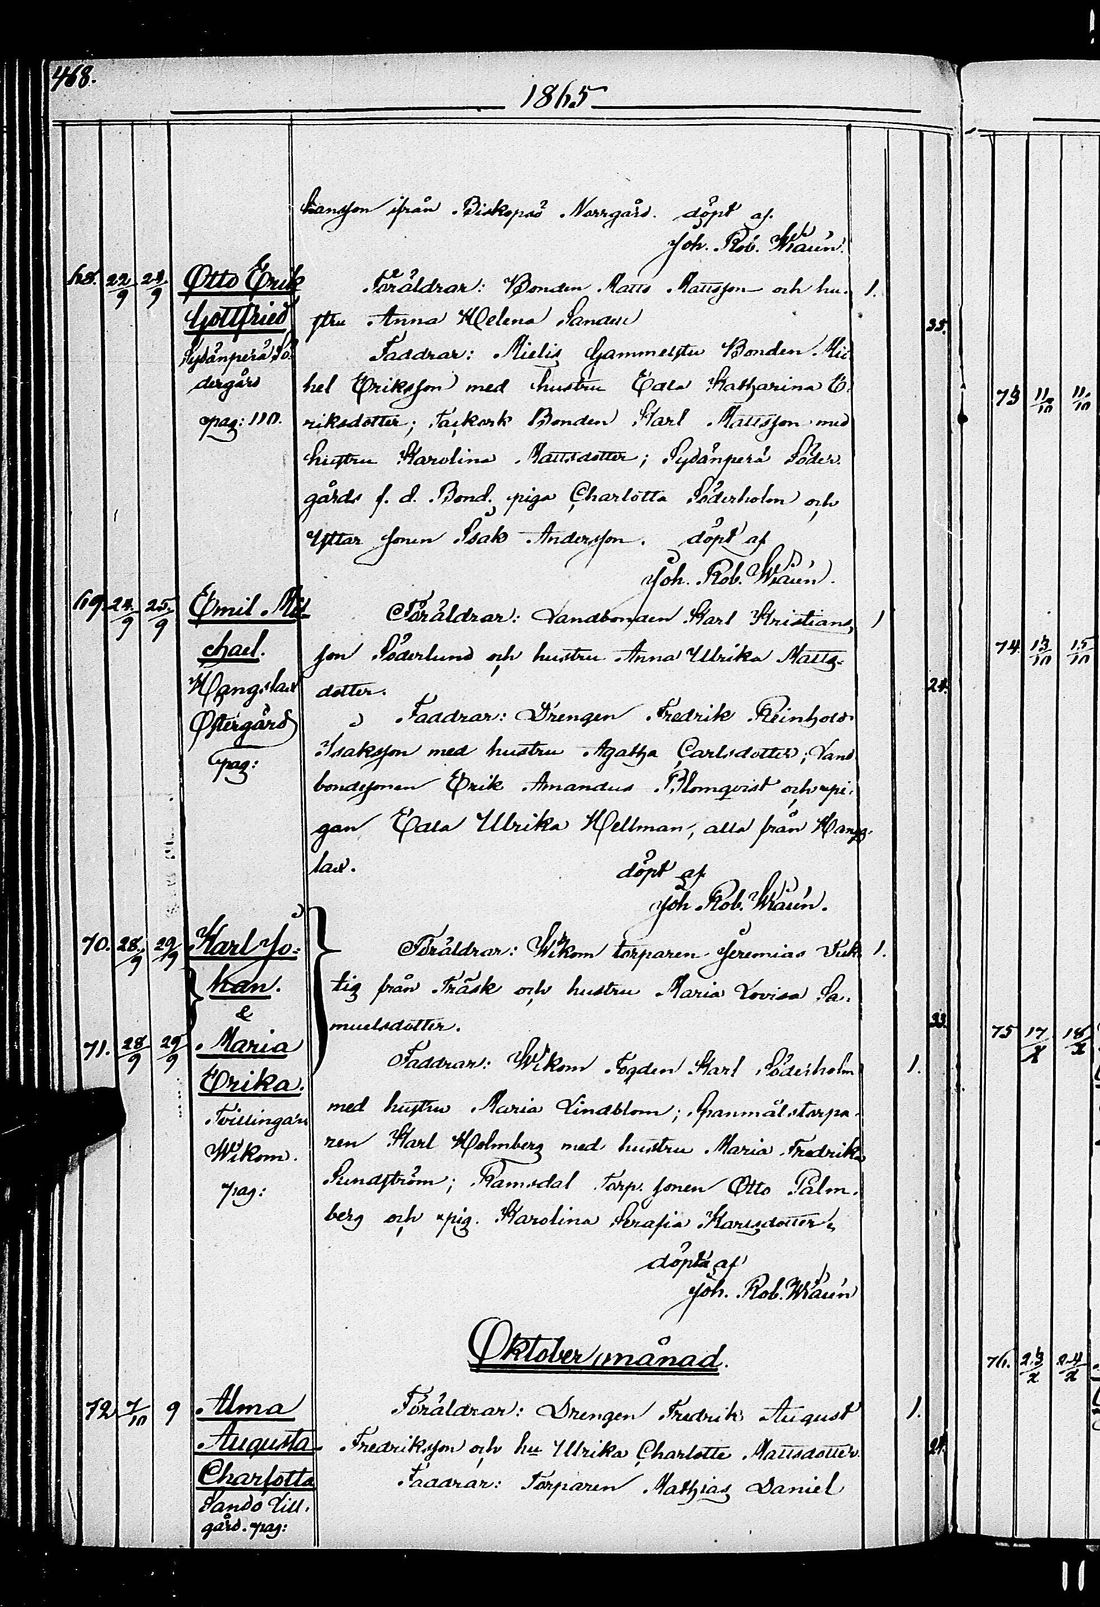 468.
1865
hansson ifrån Biskopsö Norrgård. döpt af
Joh. Rob. Wraén.
68. 22/9 24/9 Otto Erik
Gottfried
Sydänperä Sö-
dergård
pag: 110.
Föräldrar: Bonden Matts Mattsson och hu- 1.
stru Anna Helena Sander 35.
Faddrar: Mielis Gammelstu Bonden Mi-
hel Eriksson med hustru Edla Katharina E-
riksdotter; Bonden Karl Mattsson med
hustru Karolina Mattsdotter; Sydänperä Söder
gårds f. d. Bond. piga Charlotta Söderholm och
Yttar sonen Isak Andersson. döpt af
Joh. Rob. Wraén.
69. 24/9 25/9 Emil Mi-
chael.
Hangslax
Östergård
pag:
Föräldrar: Landbonden Karl Kristians- 1
son Söderlund och hustru Anna Ulrika Matts-
dotter. 24.
Faddrar: Drengen Fredrik Reinhold
Isaksson med hustru Agatha Carlsdotter; Land
bondesonen Erik Amandus Blomqvist och pi-
gan Edla Ulrika Hellman, alla från Hangs-
lax. döpt af
Joh. Rob. Wraén.
70. 28/9 29/9 Karl Jo-
han.
&
71. 28/9 29/9 Maria
Erika.
Tvillingar
Wikom.
pag:
Föräldrar: Wikom torparen Jeremias 1.
tig från Träsk och hustru Maria Lovisa Sa-
muelsdotter. 33.
Faddrar: Wikom Fogden Karl Söderholm 1.
med hustru Maria Lindblom; Spanmålstorpa-
ren Karl Holmberg med hustru Maria Fredrika
Sundström; Ramsdal Torp. sonen Otto Palm-
berg och pig. Karolina Serafia Karlsdotter.
döpta af
Joh. Rob. Wraén
Oktober månad.
72 7/10 9 Alma
Augusta
Charlotta
Sandö Lill-
gård. pag:
Föräldrar: Drengen Fredrik August 1.
Fredriksson och hu Ulrika Charlotte Mattsdotter. 24.
Faddrar: Torparen Mathias Daniel
73 11/10 11/10
74 13/10 15/10
75 17/X 18/X
76. 23/X 24/X
11